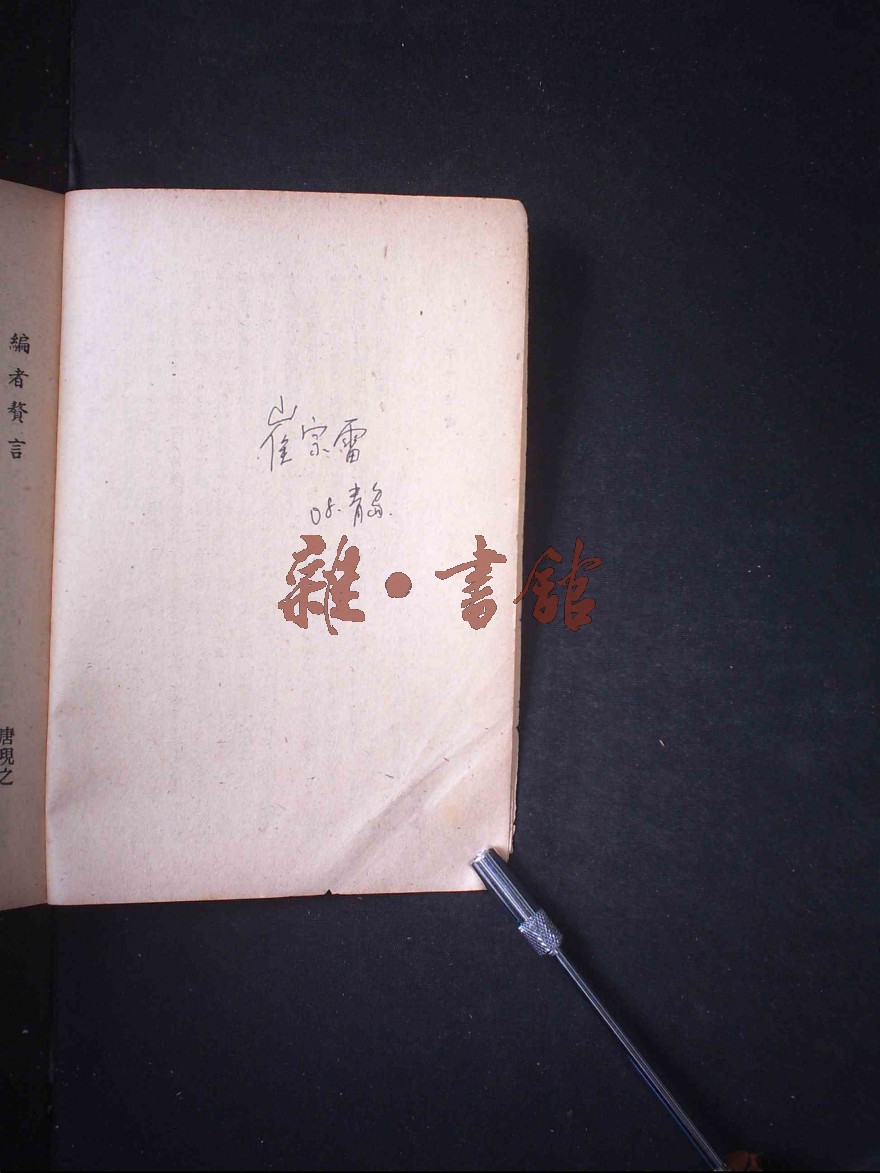 編者贅言
唐現之
崔宗雷
08.青島.
雜·書館